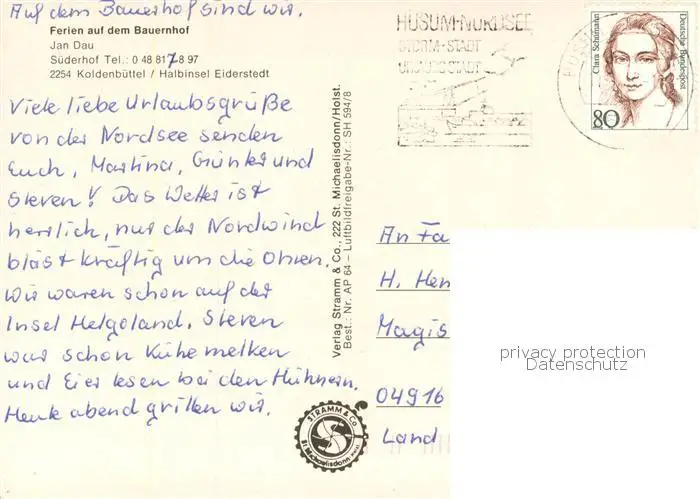 Auf dem Bauernhof sind wir.
Ferien auf dem Bauernhof
Jan Dau
Süderhof Tel.: 0 48 81/7 8 97
2254 Koldenbüttel / Halbinsel Eiderstedt
Viele liebe Urlaubsgrüße
von der Nordsee senden
Euch, Martina, Günter und
Steven! Das Wetter ist
herrlich, nur der Nordwind
bläst kräftig um die Ohren.
Wir waren schon auf der
Insel Helgoland. Steven
war schon Kühe melken
und Eier lesen bei den Hühnern.
Heute abend grillen wir.
Verlag Stramm & Co., 222 St. Michaelisdonn/Holst.
Best.: Nr. AP 64 – Luftbildfreigabe-Nr.: SH 594/8
STRAMM & Co
St. Michaelisdonn Holst.
HUSUM-NORDSEE
STORM-STADT
URLAUBSSTADT
Clara Schumann
Deutsche Bundespost
80
An Fa
H. Hen
Magis
04916
Land
privacy protection
Datenschutz